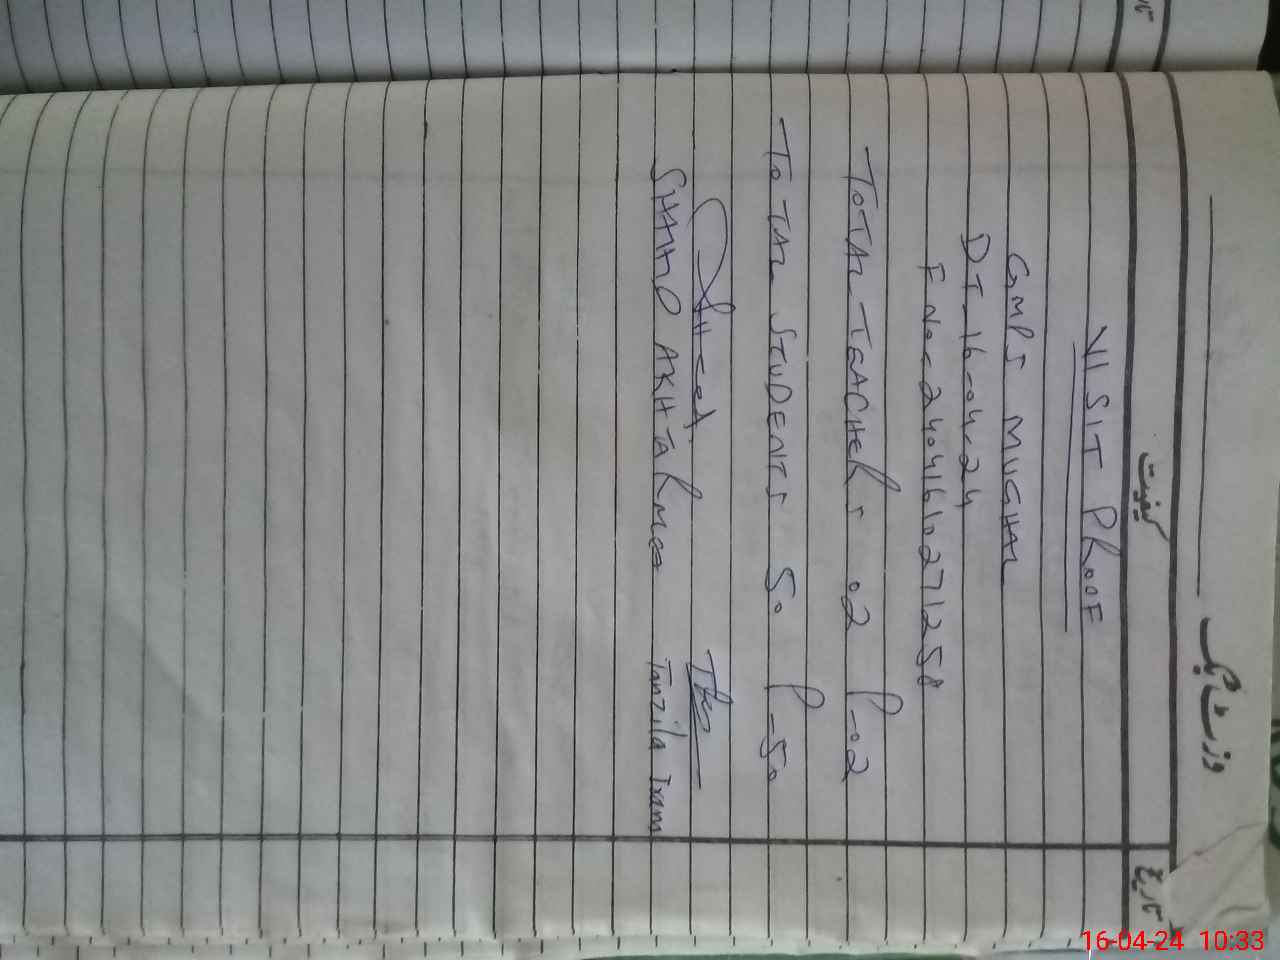 وزٹ بک
کیفیت
تاریخ
VISIT PROOF
GMPS MUGHAL
DT-16-04-24
TOTAL TEACHERS 02 P-02
TOTAL STUDENTS 50 P-50
SHAHID AKHTAR
Tanzila Iram
16-04-24 10:33